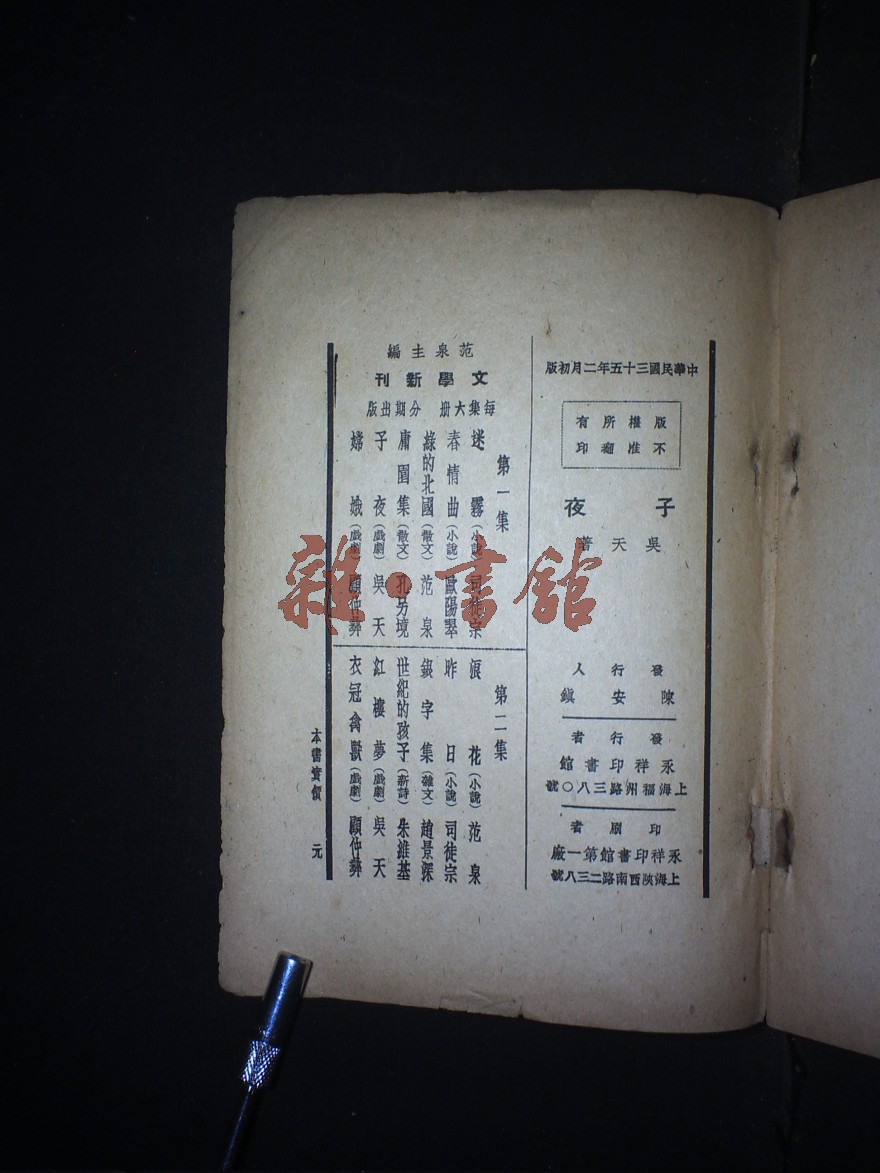 中華民國三十五年二月初版
版權所有
不准翻印
子夜
吳天著
發行人
陳安鎮
發行者
永祥印書館
上海福州路三八〇號
印刷者
永祥印書館第一廠
上海陝西南路二三八號
范泉主編
文學新刊
每集六冊 分期出版
第一集
迷霧(小說)司徒宗
春情曲(小說)歐陽翠
綠的北國(散文)范泉
庸園集(散文)孔另境
子夜(戲劇)吳天
嫦娥(戲劇)顧仲彝
第二集
浪花(小說)范泉
昨日(小說)司徒宗
銀字集(雜文)趙景深
世紀的孩子(新詩)朱維基
紅樓夢(戲劇)吳天
衣冠禽獸(戲劇)顧仲彝
本書實價 元
雜·書館